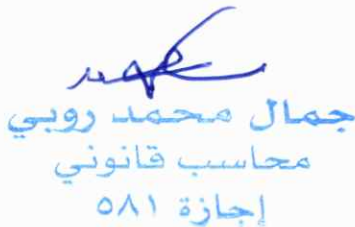 جمال محمد روبي
محاسب قانوني
إجازة ٥٨١